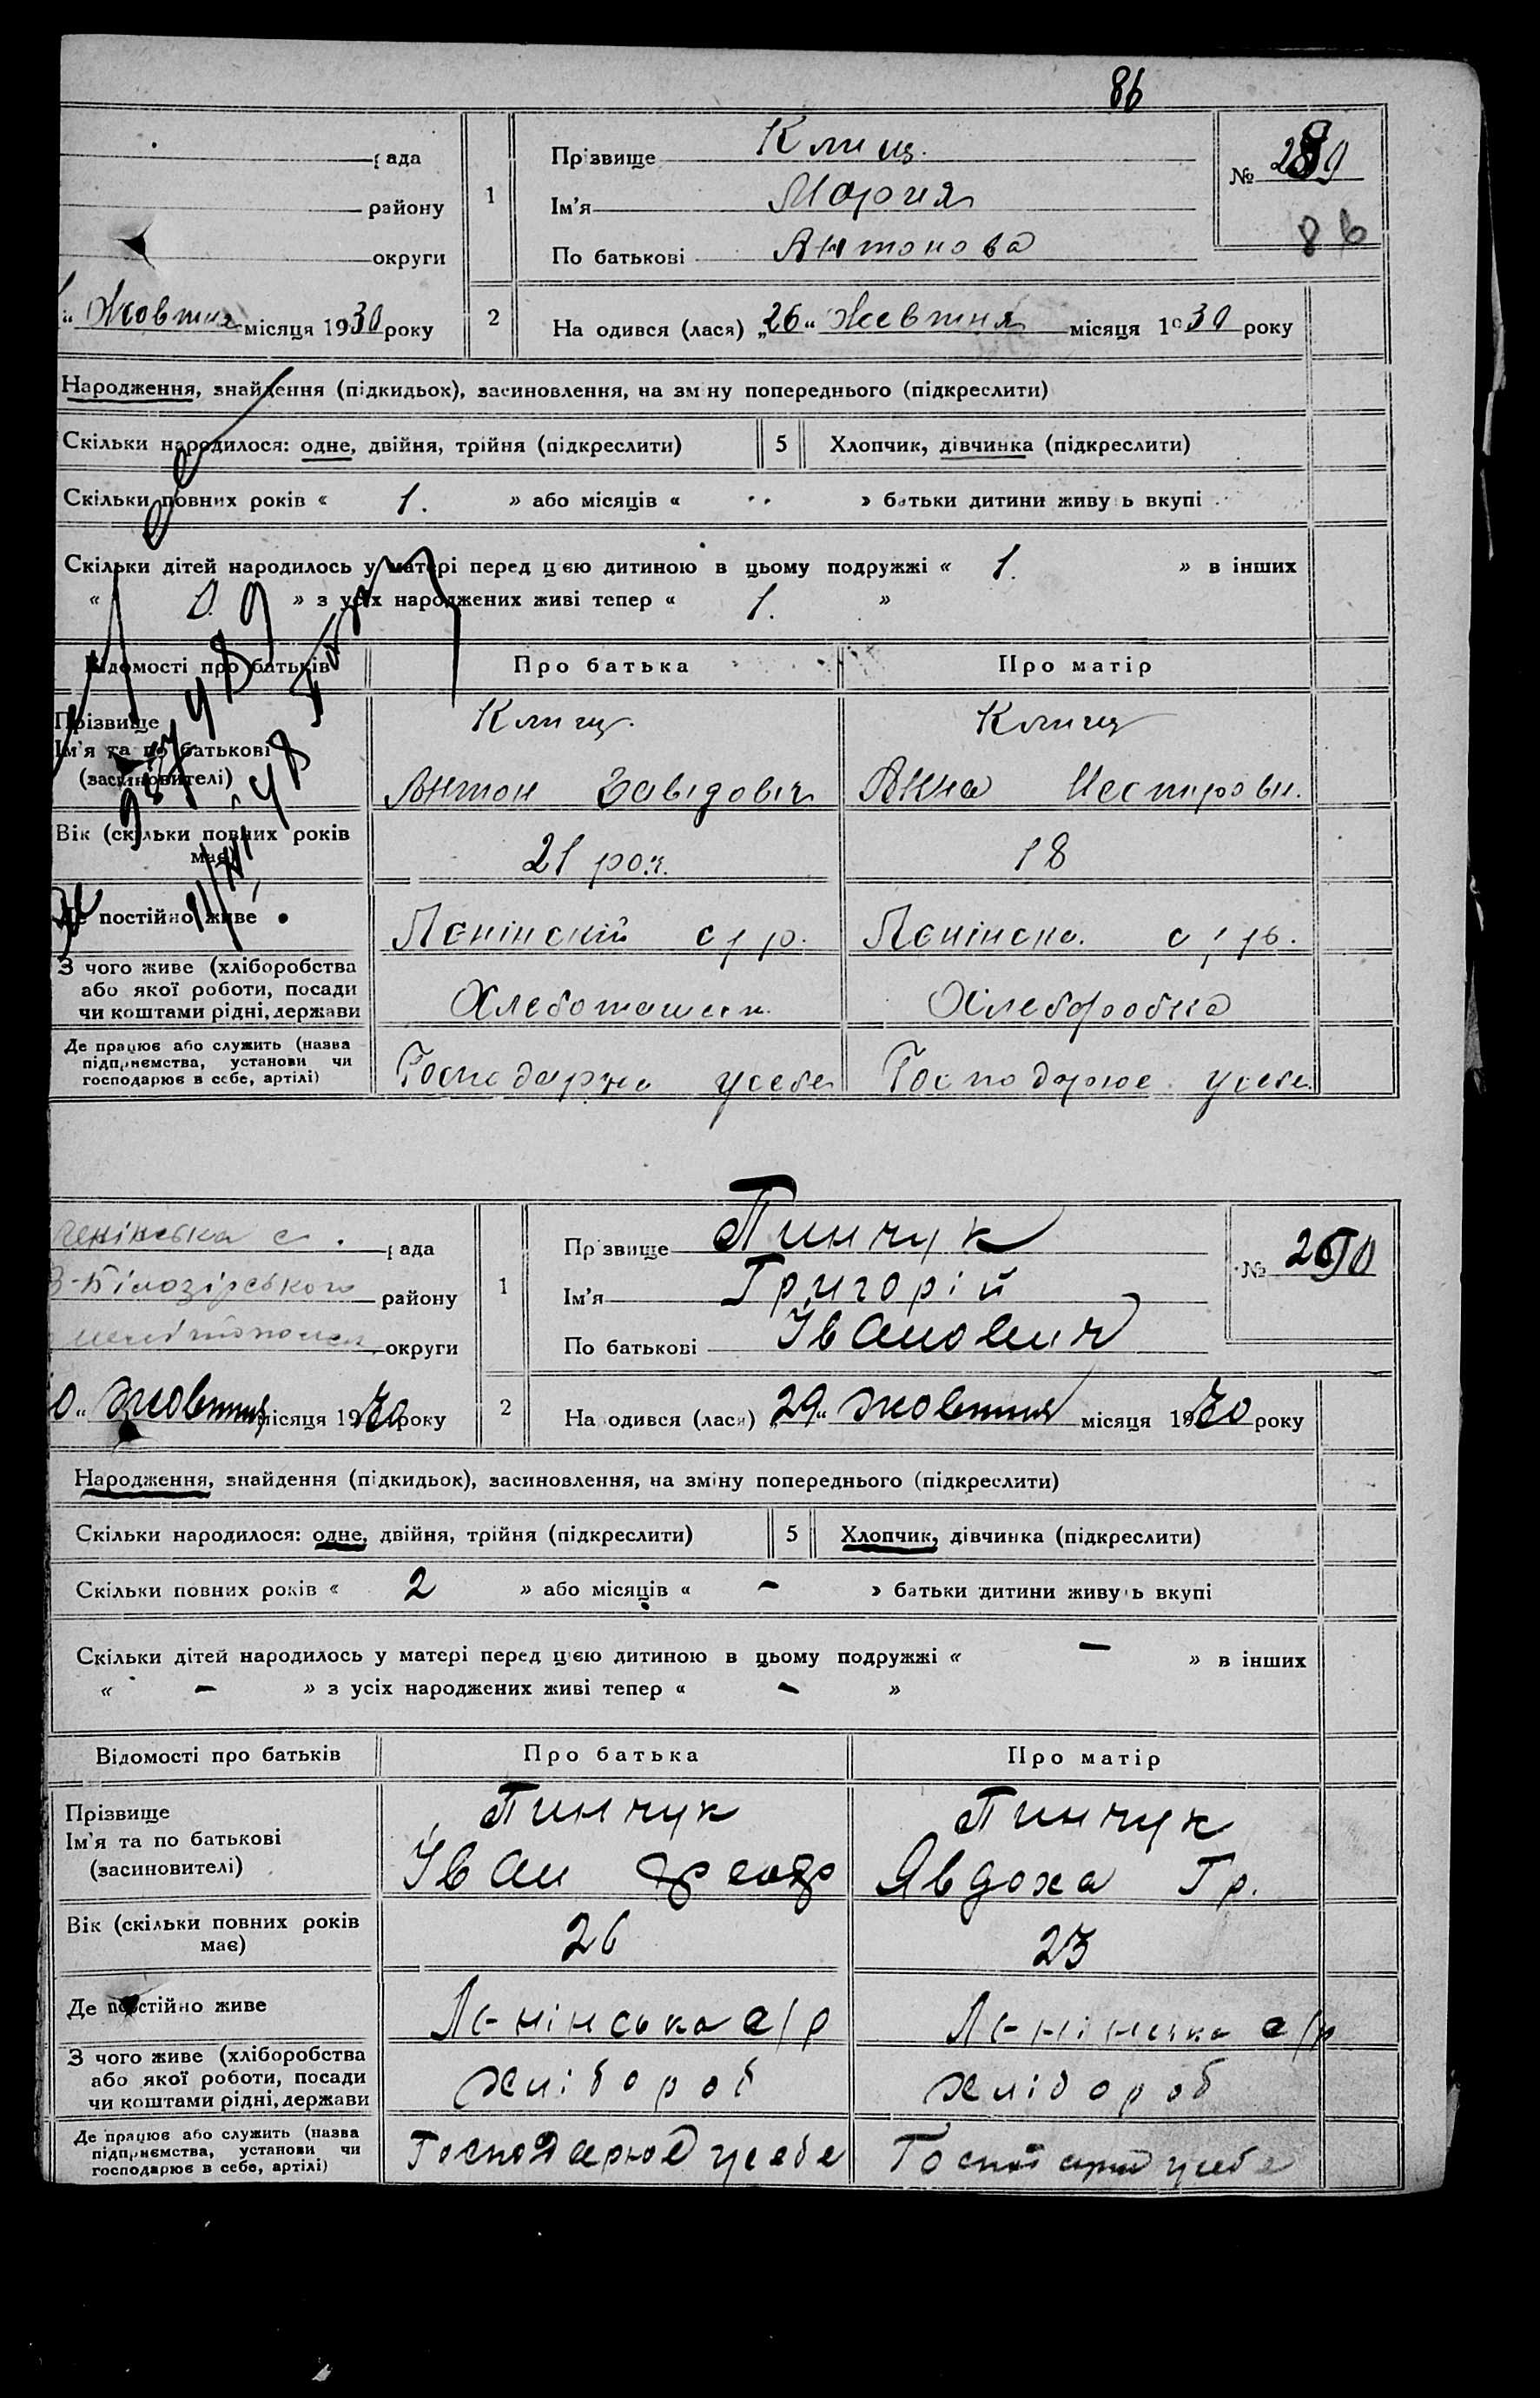 86
рада
району
округи
Жовтня місяця 1930 року
1
Прізвище Клищ.
Ім'я Мария
По батькові Антонова
№
86
2
На одився (лася) „26“ Жовтня місяця 1930 року
Народження, знайдення (підкидьох), засиновлення, на зм ну попереднього (підкреслити)
Скільки народилося: одне, двійня, трійня (підкреслити) 5 Хлопчик, дівчинка (підкреслити)
Скільки повних років « 1. » або місяців « » батьки дитини живу ь вкупі
Скільки дітей народилось у матері перед цією дитиною в цьому подружжі « 1. » в інших
« 0. » з усіх народжених живі тепер « 1. »
Відомості про батьків Про батька Про матір
Прізвище
Ім'я та по батькові
(засиновителі)
Клищ. Клищ
Антон Завідовіч Анна Нестировн.
Вік (скільки повних років має) 21 роч. 18
Де постійно живе Ленінскій с/р. Ленінска. с/р.
З чого живе (хліборобства
або якої роботи, посади
чи коштами рідні, держави
Хлеборобка
Де працює або служить (назва
підприємства, установи чи
господарює в себе, артілі)
усебе Господарює усебе
Ленінська с. рада
З-Білозірського району
округи
жовтня місяця 1930 року
1
Пр звище Пинчук
Ім'я Григорій
По батькові Іванович
№
2
На одився (лася) „29“ жовтня місяця 1930 року
Народження, знайдення (підкидьок), засиновлення, на зміну попереднього (підкреслити)
Скільки народилося: одне, двійня, трійня (підкреслити) 5 Хлопчик, дівчинка (підкреслити)
Скільки повних років « 2 » або місяців « - » батьки дитини живу ь вкупі
Скільки дітей народилось у матері перед цією дитиною в цьому подружжі « - » в інших
« - » з усіх народжених живі тепер « - »
Відомості про батьків Про батька Про матір
Прізвище
Ім'я та по батькові
(засиновителі)
Пинчук Пинчук
Іван Явдоха Гр.
Вік (скільки повних років має) 26 23
Де постійно живе Ленінська с/р Ленінська с/р
З чого живе (хліборобства
або якої роботи, посади
чи коштами рідні, держави
хлібороб хлібороб
Де працює або служить (назва
підприємства, установи чи
господарює в себе, артілі)
Господарює усебе Господарює усебе